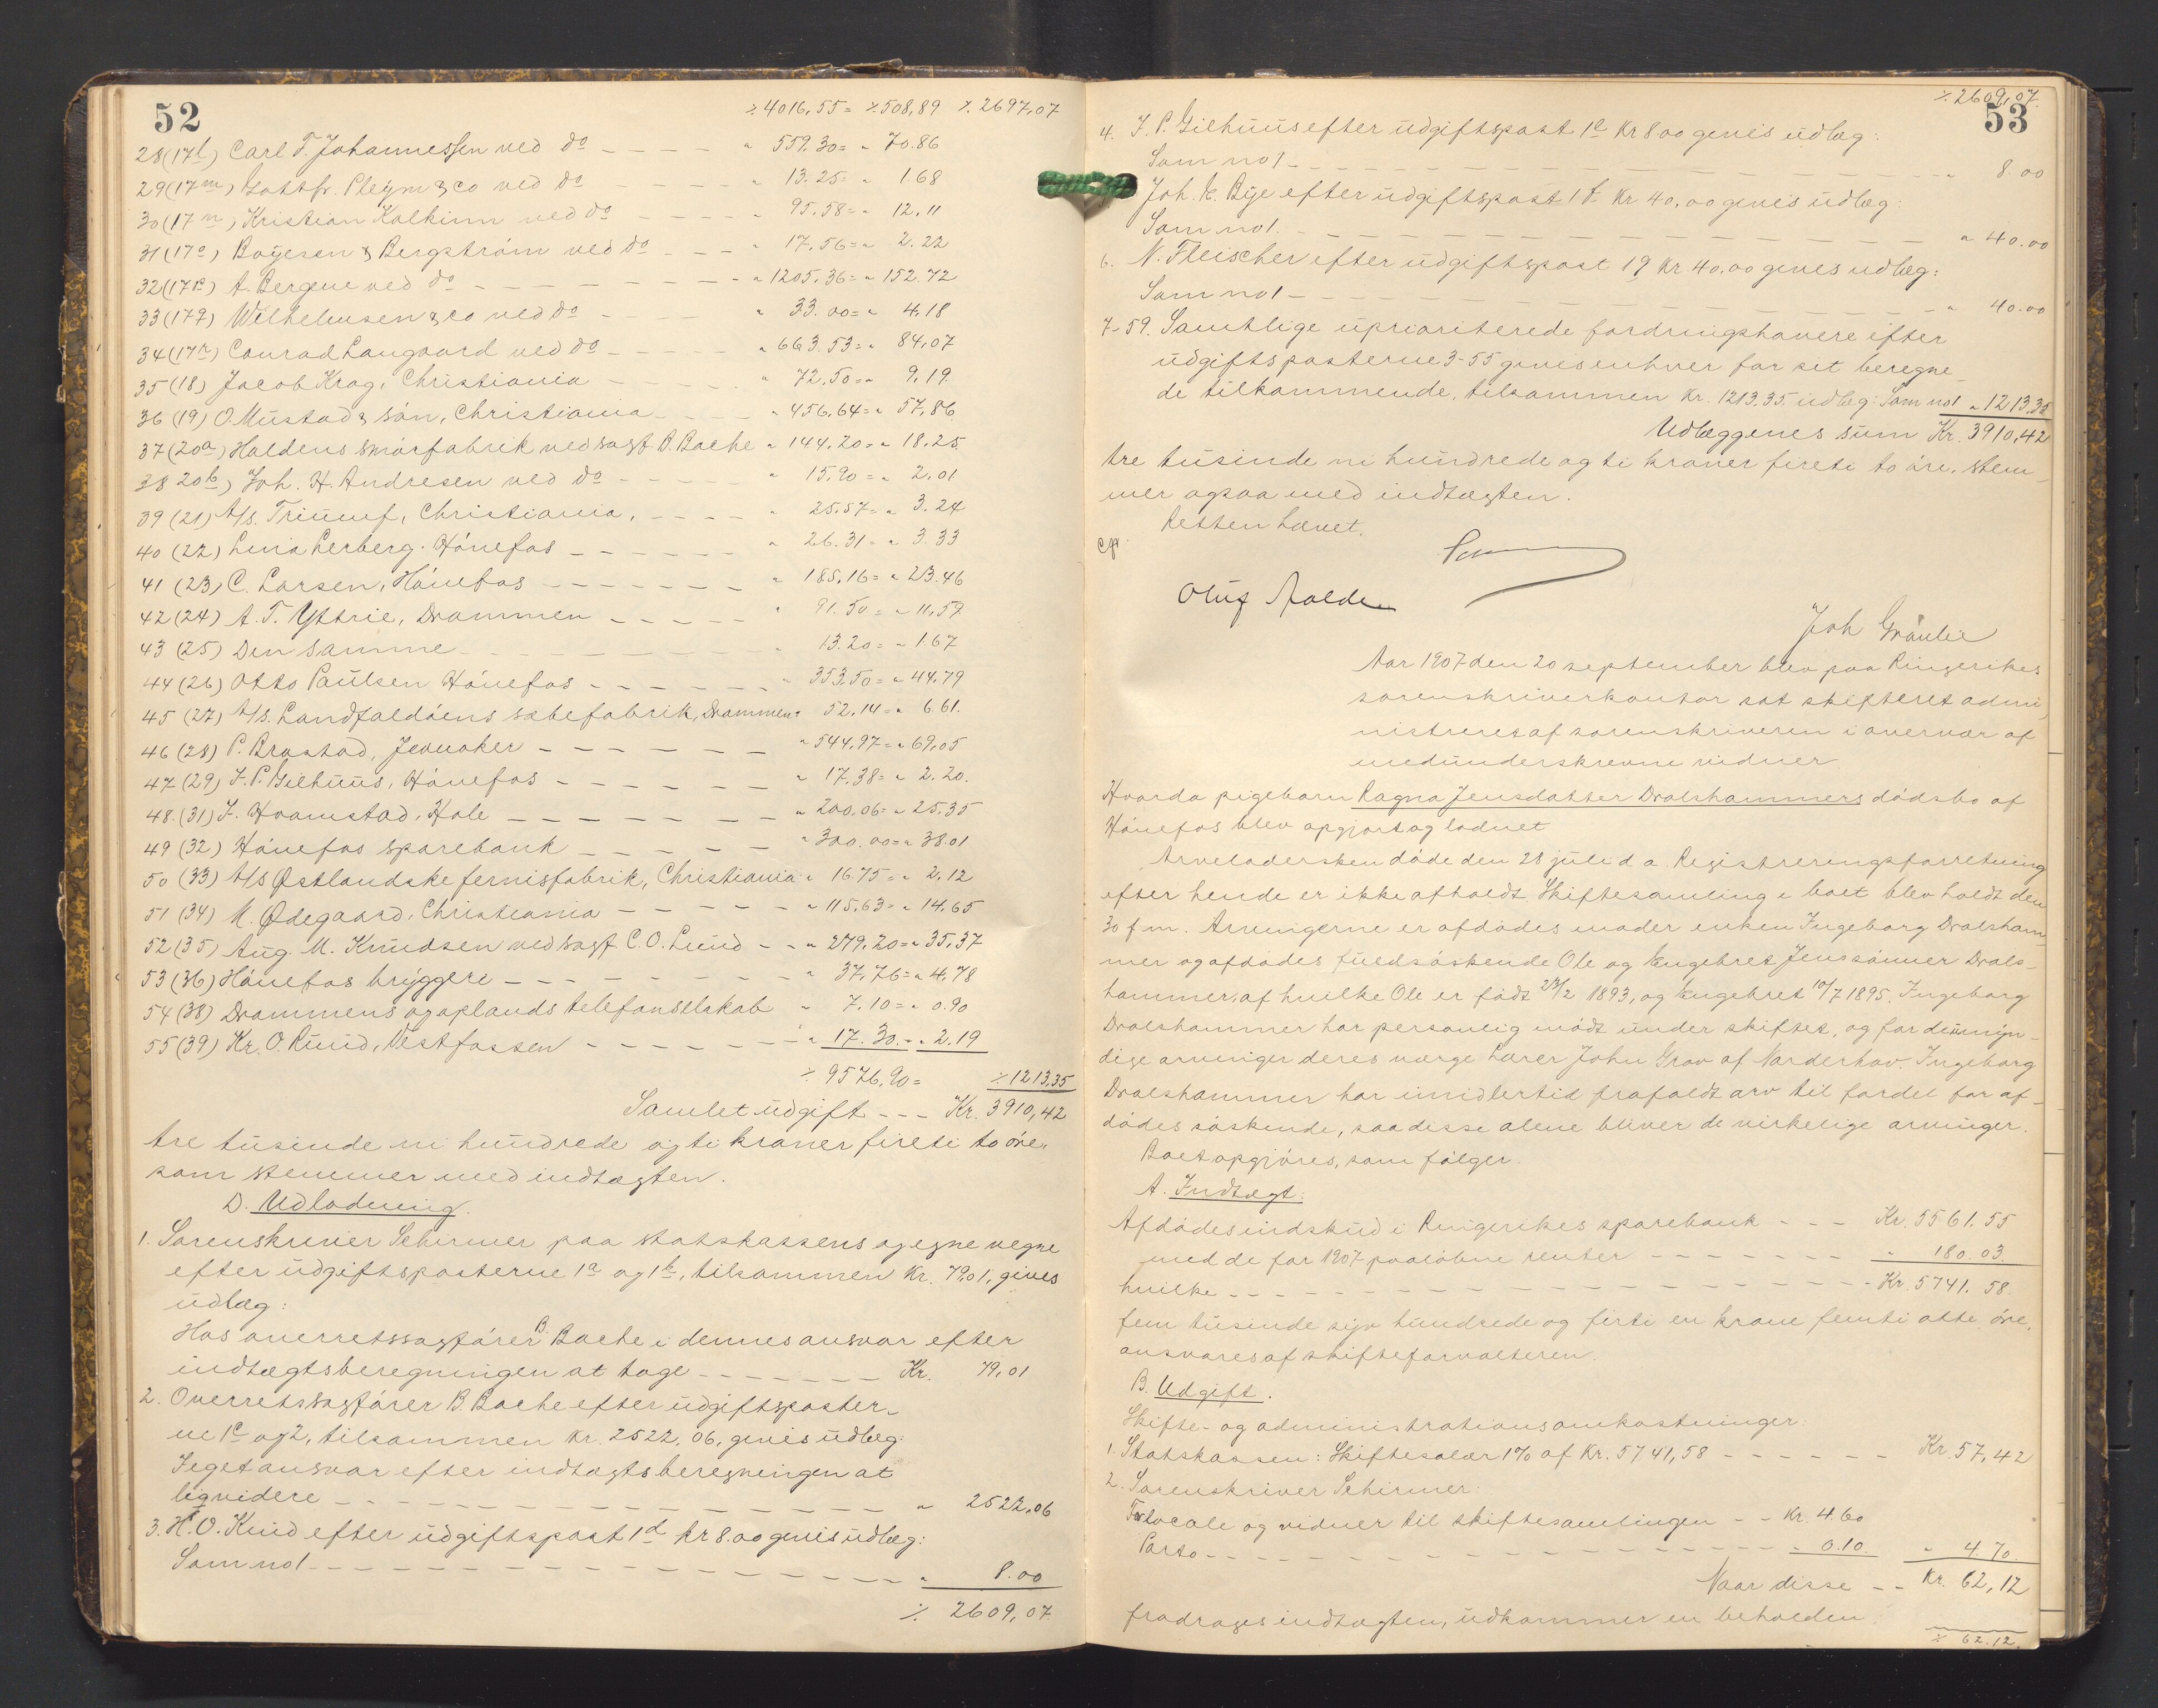 52
٪ 4016,55 = ٪ 508,89 ٪ 2697,07
28 (17l) Carl T. Johannessen ved do - - - - " 559.30 = " 70.86
29 (17m) Gottfr. Pleym & co ved do - - - - " 13.25 = " 1.68
30 (17n) Kristian Kolkinn ved do - - - - " 95.58 = " 12.11
31 (17o) Boyesen & Bergström ved do - - - " 17,56 = " 2.22
32 (17p) A. Bergene ved do - - - - - - " 1205,36 = " 152.72
33 (17q) Wilhelmsen & co ved do - - - " 33.00 = " 4.18
34 (17r) Conrad Langaard ved do - - - - " 663.53 = " 84,07
35 (18) Jacob Krag, Christiania - - - - " 72,50 = " 9,19
36 (19) O. Mustad & sön, Christiania - - - " 456,64 = " 57,86
37 (20a) Haldens smörfabrik ved sagf. B. Bache " 144,20 = " 18,25
38 20b) Joh. H. Andresen ved do - - - - - " 15,90 = " 2,01
39 (21) A/s. Triumf, Christiania, - - - - " 25,57 = " 3.24
40 (22) Lina Lerberg. Hönefos - - - - - " 26.31 = " 3.33
41 (23) C. Larsen, Hönefos - - - - - - " 185,16 = " 23.46
42 (24) A. T. Yttrie, Drammen - - - - - " 91.50 = " 11,59
43 (25) Den samme - - - - - - - - " 13.20 = " 1.67
44 (26) Otto Paulsen Hönefos - - - - - - " 353,50 = " 44,79
45 (27) A/s. Landfaldöens sæbefabrik, Drammen " 52,14 = " 6.61.
46 (28) P. Brastad, Jevnaker - - - - - - " 544,97 = " 69,05
47 (29) J. P. Gilhuus, Hönefos - - - - - - " 17,38 = " 2.20.
48. (31) J. Hvamstad, Hole - - - - - - - " 200,06 = " 25,35
49 (32) Hönefos sparebank - - - - - " 300.00 = " 38.01
50 (33) A/s Østlandske fernisfabrik, Christiania " 16.75 = " 2,12
51 (34) M. Ødegaard, Christiania - - - - - " 115,63 = " 14,65
52 (35) Aug. M. Knudsen ved sagf C. O. Lund - - " 279,20 = " 35,37
53 (36) Hönefos bryggeri - - - - - - - - " 37,76 = " 4,78
54 (38) Drammens og oplands telefonselskab " 7.10 = " 0.90
55 (39) Kr. O. Ruud, Vestfossen - - - - - - - " 17.30. = " 2.19
٪ 9576,90 = ٪ 1213,35
Samlet udgift - - - Kr. 3910,42
tre tusinde ni hundrede og ti kroner fireti to öre,
som stemmer med indtægten.
D. Udlodning.
1. Sorenskriver Schirmer paa statskassens og egne vegne
efter udgiftsposterne 1a og 1b, tilsammen Kr. 79,01, gives
udlæg:
Hos overretssagförer B. Bache i dennes ansvar efter
indtægtsberegningen at tage - - - - - - - Kr. 79,01
2. Overretssagförer B. Bache efter udgiftsposter-
ne 1c og 2, tilsammen Kr. 2522,06, gives udlæg:
I eget ansvar efter indtægtsberegningen at
liqvidere - - - - - - - - - - - - - - - " 2522,06
3. H. O. Kuid efter udgiftspost 1d kr 8.00 gives udlæg:
Som no 1 - - - - - - - - - - - - - - - - " 8.00
٪ 2609,07
٪ 2609,07.
53
4. J. P. Gilhuus efter udgiftspost 1e Kr 8 00 gives udlæg:
Som no 1 - - - - - - - - - - - - - - - - " 8.00
Joh. K. Bye efter udgiftspost 1f Kr 40,00 gives udlæg:
Som no 1. - - - - - - - - - - - - - - - - " 40.00
6. N. Fleischer efter udgiftspost 1g Kr. 40,00 gives udlæg:
Som no 1 - - - - - - - - - - - - - - - - " 40.00
7-59. Samtlige uprioriterede fordringshavere efter
udgiftsposterne 3-55 gives enhver for set beregne-
de tilkommende, tilsammen Kr. 1213,35 udlæg: Som no 1 " 1213,35
Udlæggenes sum Kr. 3910,42
tre tusinde ni hundrede og ti kroner fireti to öre, stem-
mer ogsaa med indtægten.
Retten hævet.
Oluf Aalde
Joh Grönlie
Aar 1907 den 20 september blev paa Ringerikes
sorenskriverkontor sat skifteret admi-
nistreret af sorenskriveren i overvær af
medunderskrevne vidner.
Hvorda pigebarn Ragna Jensdatter Dvalshammers dödsbo af
Hönefos blev opgjort og lodnet
Arveladersken döde den 28 juli d. a. Registreringsforretning
efter hende er ikke afholdt. Skiftesamling i boet blev holdt den
30 f. m. Arvingerne er afdödes moder enken Ingeborg Dvalsham-
mer og afdödes fuldsöskende Ole og Engebret Jenssönner Dvals-
hammer, af hvilke Ole er född 23/2 1893, og Engebret 10/7 1895. Ingeborg
Dvalshammer har personlig mödt under skiftet, og for de umyn-
dige arvinger deres værge Lærer John Grov af Norderhov. Ingeborg
Dvalshammer har imidlertid frafaldt arv til fordel for af-
dödes söskende, saa disse alene bliver de virkelige arvinger.
Boet opgjöres, som fölger.
A. Indtægt:
Afdödes indskud i Ringerikes sparebank - - - Kr. 5561.55
med de for 1907 paalöbne renter - - - - - - - " 180.03.
hvilke - - - - - - - - - - - - - - - - - - - Kr. 5741.58.
fem tusinde syv hundrede og firti en krone femti otte öre,
ansvares af skifteforvalteren.
B. Udgift.
Skifte- og administrationsomkostninger:
1. Statskassen: Skiftesalær 1% af Kr. 5741,58 - - - - - - Kr. 57,42
2. Sorenskriver Schirmer:
For locale og vidner til skiftesamlingen - - Kr. 4.60
Porto - - - - - - - - - - - - - - - " 0.10. " 4.70.
Naar disse - - Kr. 62,12
fradrages indtægten, udkommer en beholden
٪ 62.12.